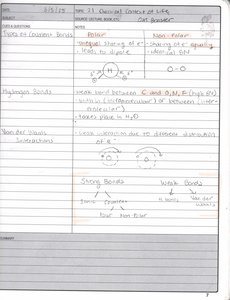 DATE 2/5/09 TOPIC 2.1 Chemical Context of Life
SUBJECT SOURCE (LECTURE, BOOK, ETC)
CUES & QUESTIONS NOTES
Types of Covalent Bonds
Polar Non-Polar
unequal sharing of e- - sharing of e- equally
- leads to dipole - identical EN
H O-O
Hydrogen Bonds
- weak bond between and O, N, F (high EN)
- within (intramolecular) or between (inter-
molecular)
- takes place in H2O
Van der Waals
Interactions
- weak interaction due to different distribution
of e-
Strong Bonds Weak Bonds
Ionic Covalent H-bonds Van der Waals
Polar Non-Polar
SUMMARY